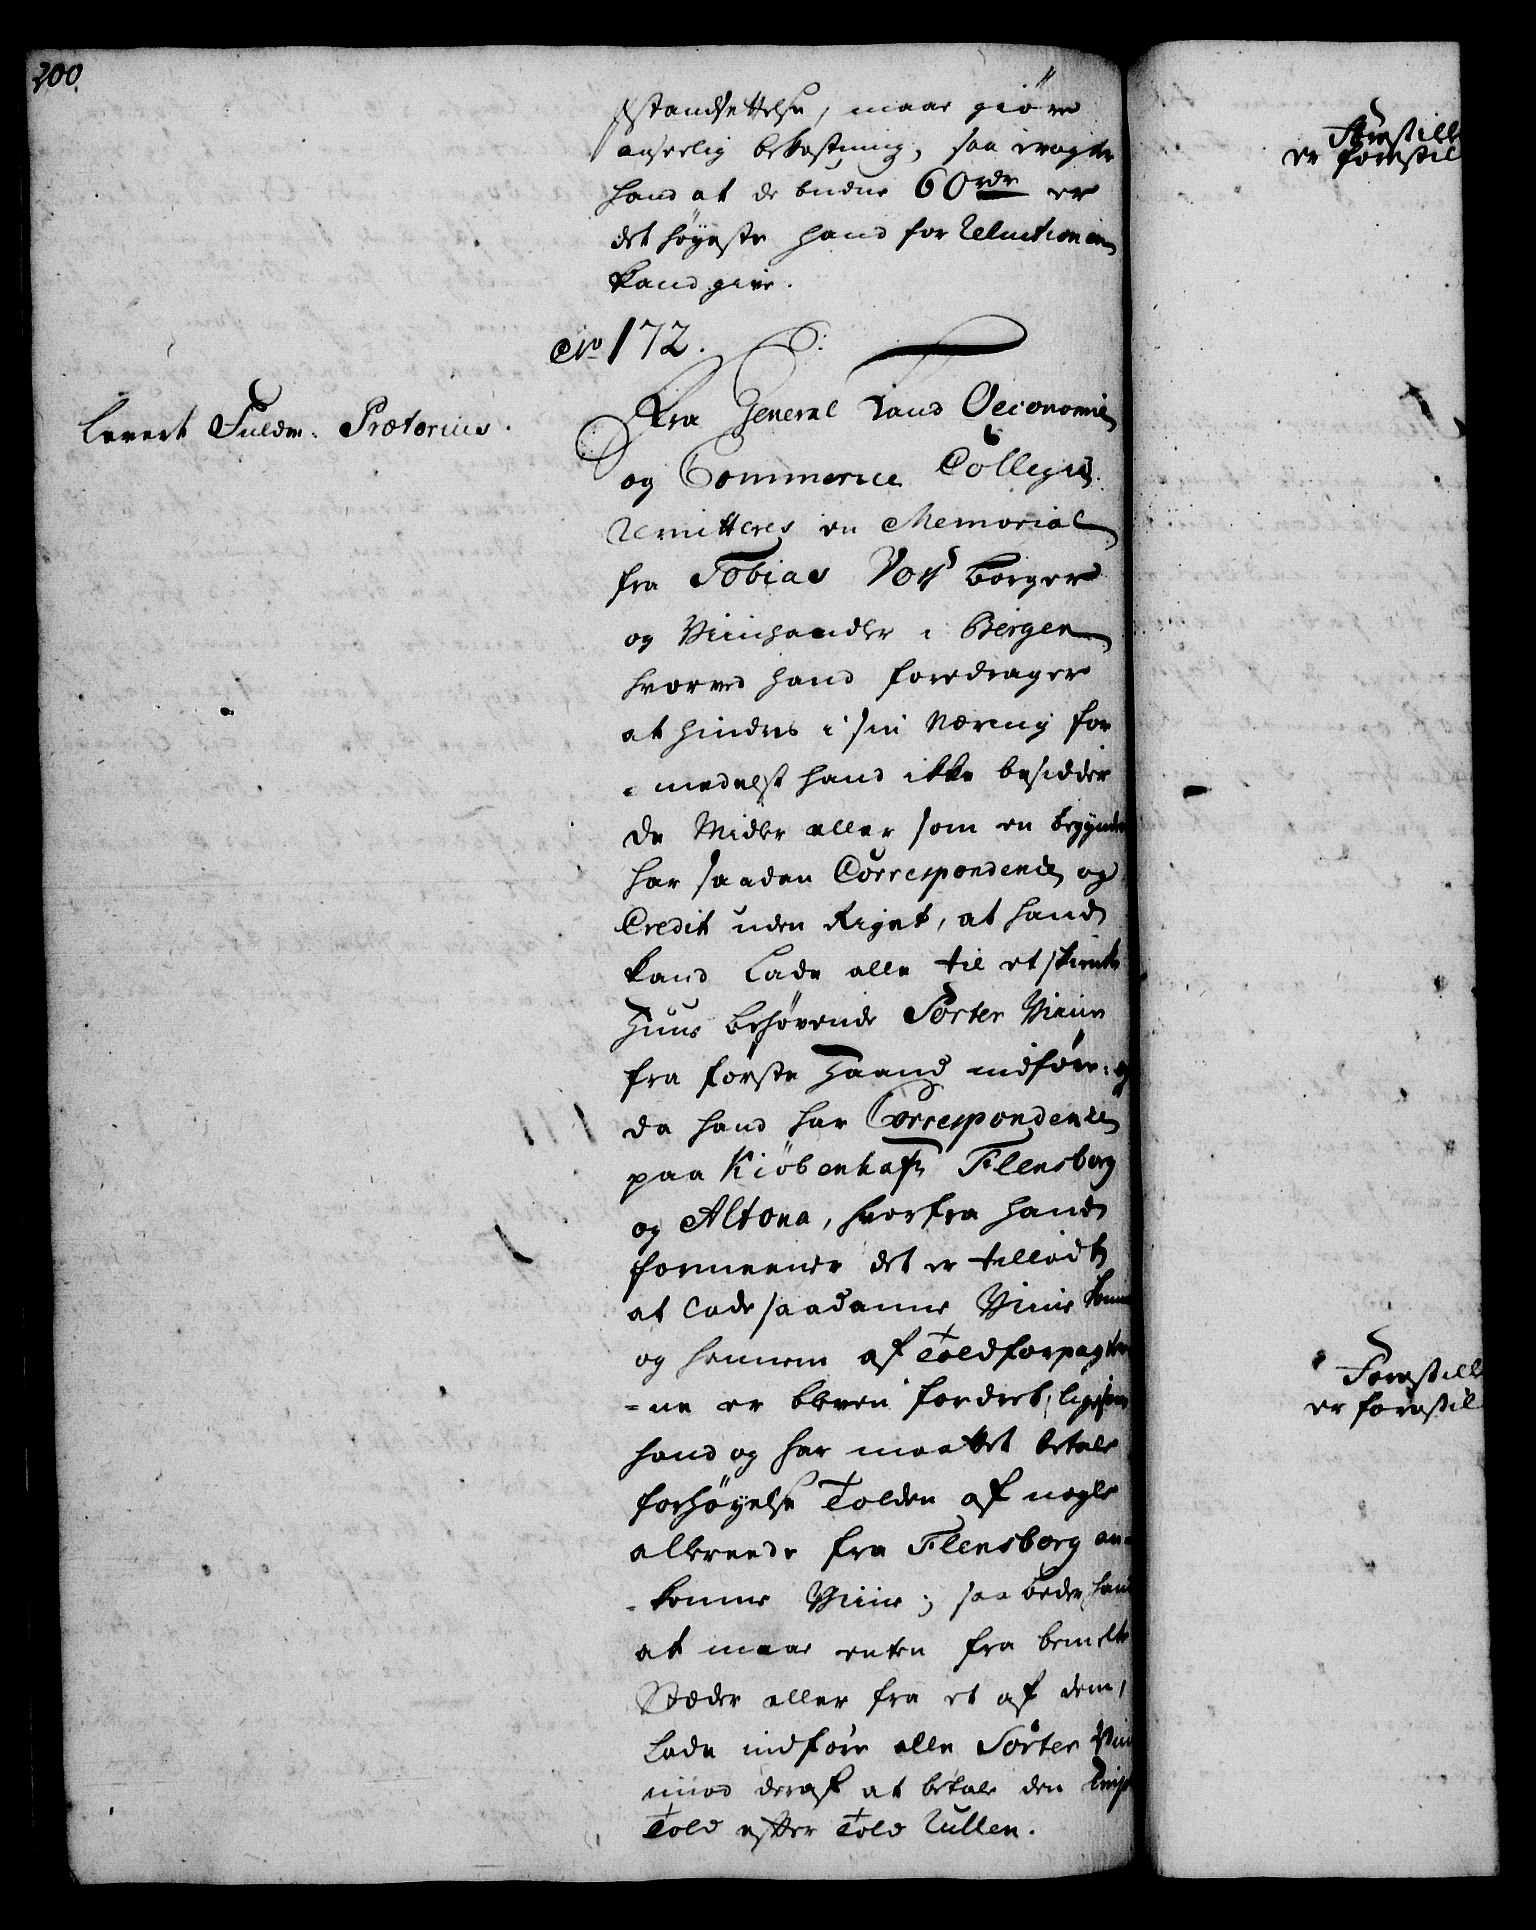 200.
standsættelse, maae giøre
anseelig bekostning, saa eragter
hand at de budne 60 rdr er
det høyeste hand for Reluctionen
kand give.
No 172.
Levert Fuldm. Prætorius.
Fra General Land Oeconomie
og Commerce Collegie
remitteres en Memorial
fra Tobias Voss borger
og Viinhandler i Bergen
hvorved hand foredrager
at hindres i sin Næring for
- medelst hand ikke besidder
de Midler eller som en begynder
har saadan Correspondence og
Credit uden Riget, at hand
kand lade alle til et skienke
Huus behøvende Sorter Viine
fra første Haand indføre, og
da hand har Correspondence
paa Kiøbenhafn Flensborg
og Altona, hvorfra hand
formeener det er tilladt
at lade saadanne Viine komme
og hannem af Toldforpagter
- ne er bleven fordret, ligesom
hand og har maattet betale
forhøyelse Tolden af nogle
allereede fra Flensborg an-
- komne Viine; saa beder hand
at maae enten fra bemelte
Stæder eller fra et af dem,
lade indføre alle Sorter Viin
imod deraf at betale den
Told efter Told Rullen.
Forestill
er forestil
Forestill
er forestil